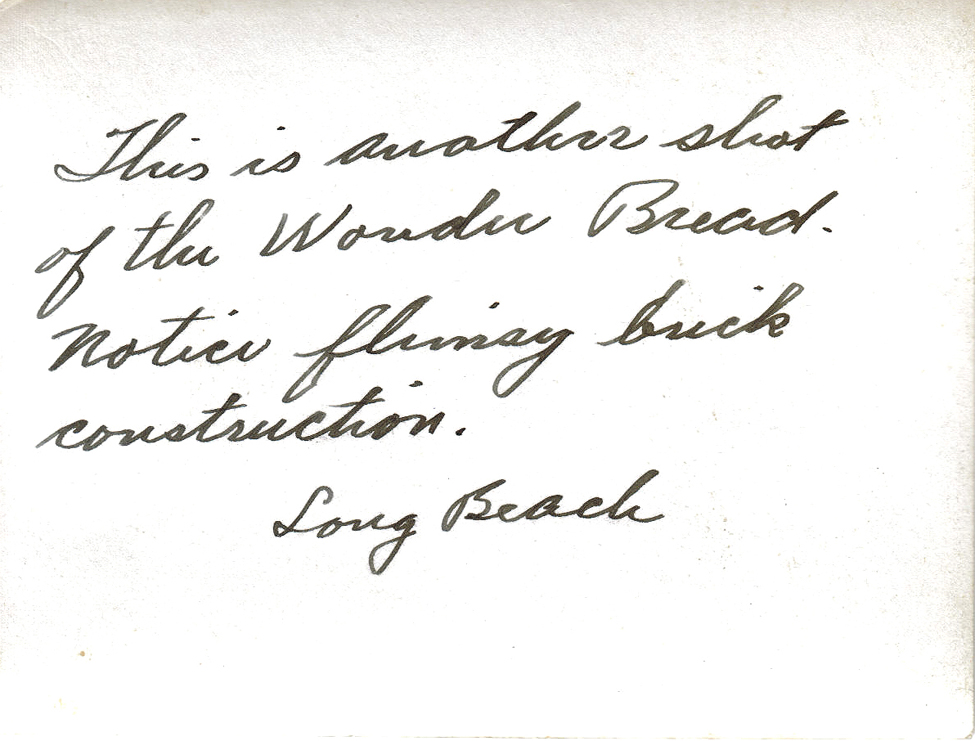 This is another shot
of the Wonder Bread.
Notice flimsy brick
construction.
Long Beach